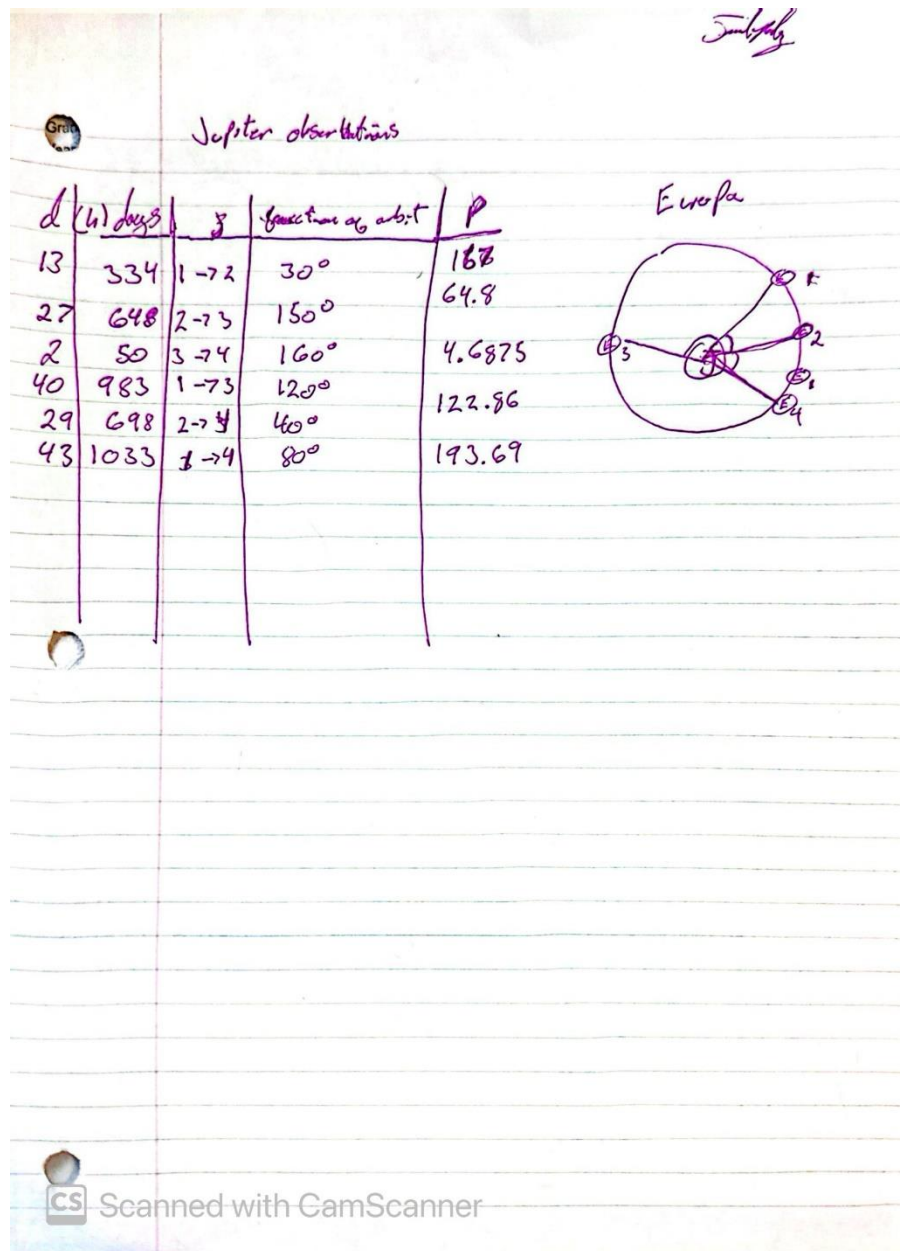 Grad
Jupiter observations
d (h) days 3 fraction of orbit P
13 334 1→2 30° 167
27 648 2→3 150° 64.8
2 50 3→4 160° 4.6875
40 983 1→3 120° 122.86
29 698 2→4 40°
43 1033 1→4 80° 193.69
Europa
E 1
E 2
3
E
E 4
CS Scanned with CamScanner